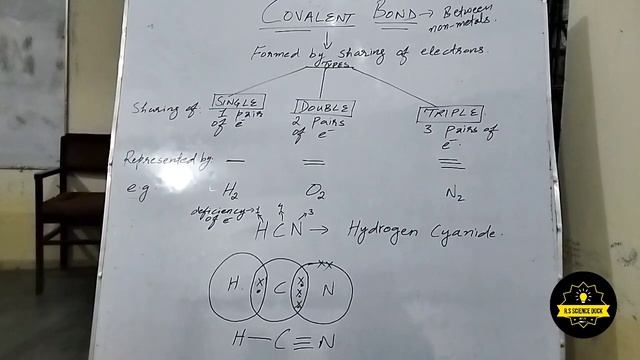 COVALENT BOND → Between
non-metals.
Formed by sharing of electrons.
TYPES
SINGLE DOUBLE TRIPLE
Sharing of. 1 pairs of e⁻ 2 pairs of e⁻ 3 pairs of e⁻.
Represented by. — = ≡
e.g H₂ O₂ N₂
deficiency → 1 4 3
of e⁻
HCN → Hydrogen Cyanide.
H. C N
H — C ≡ N
R.S SCIENCE DOCK